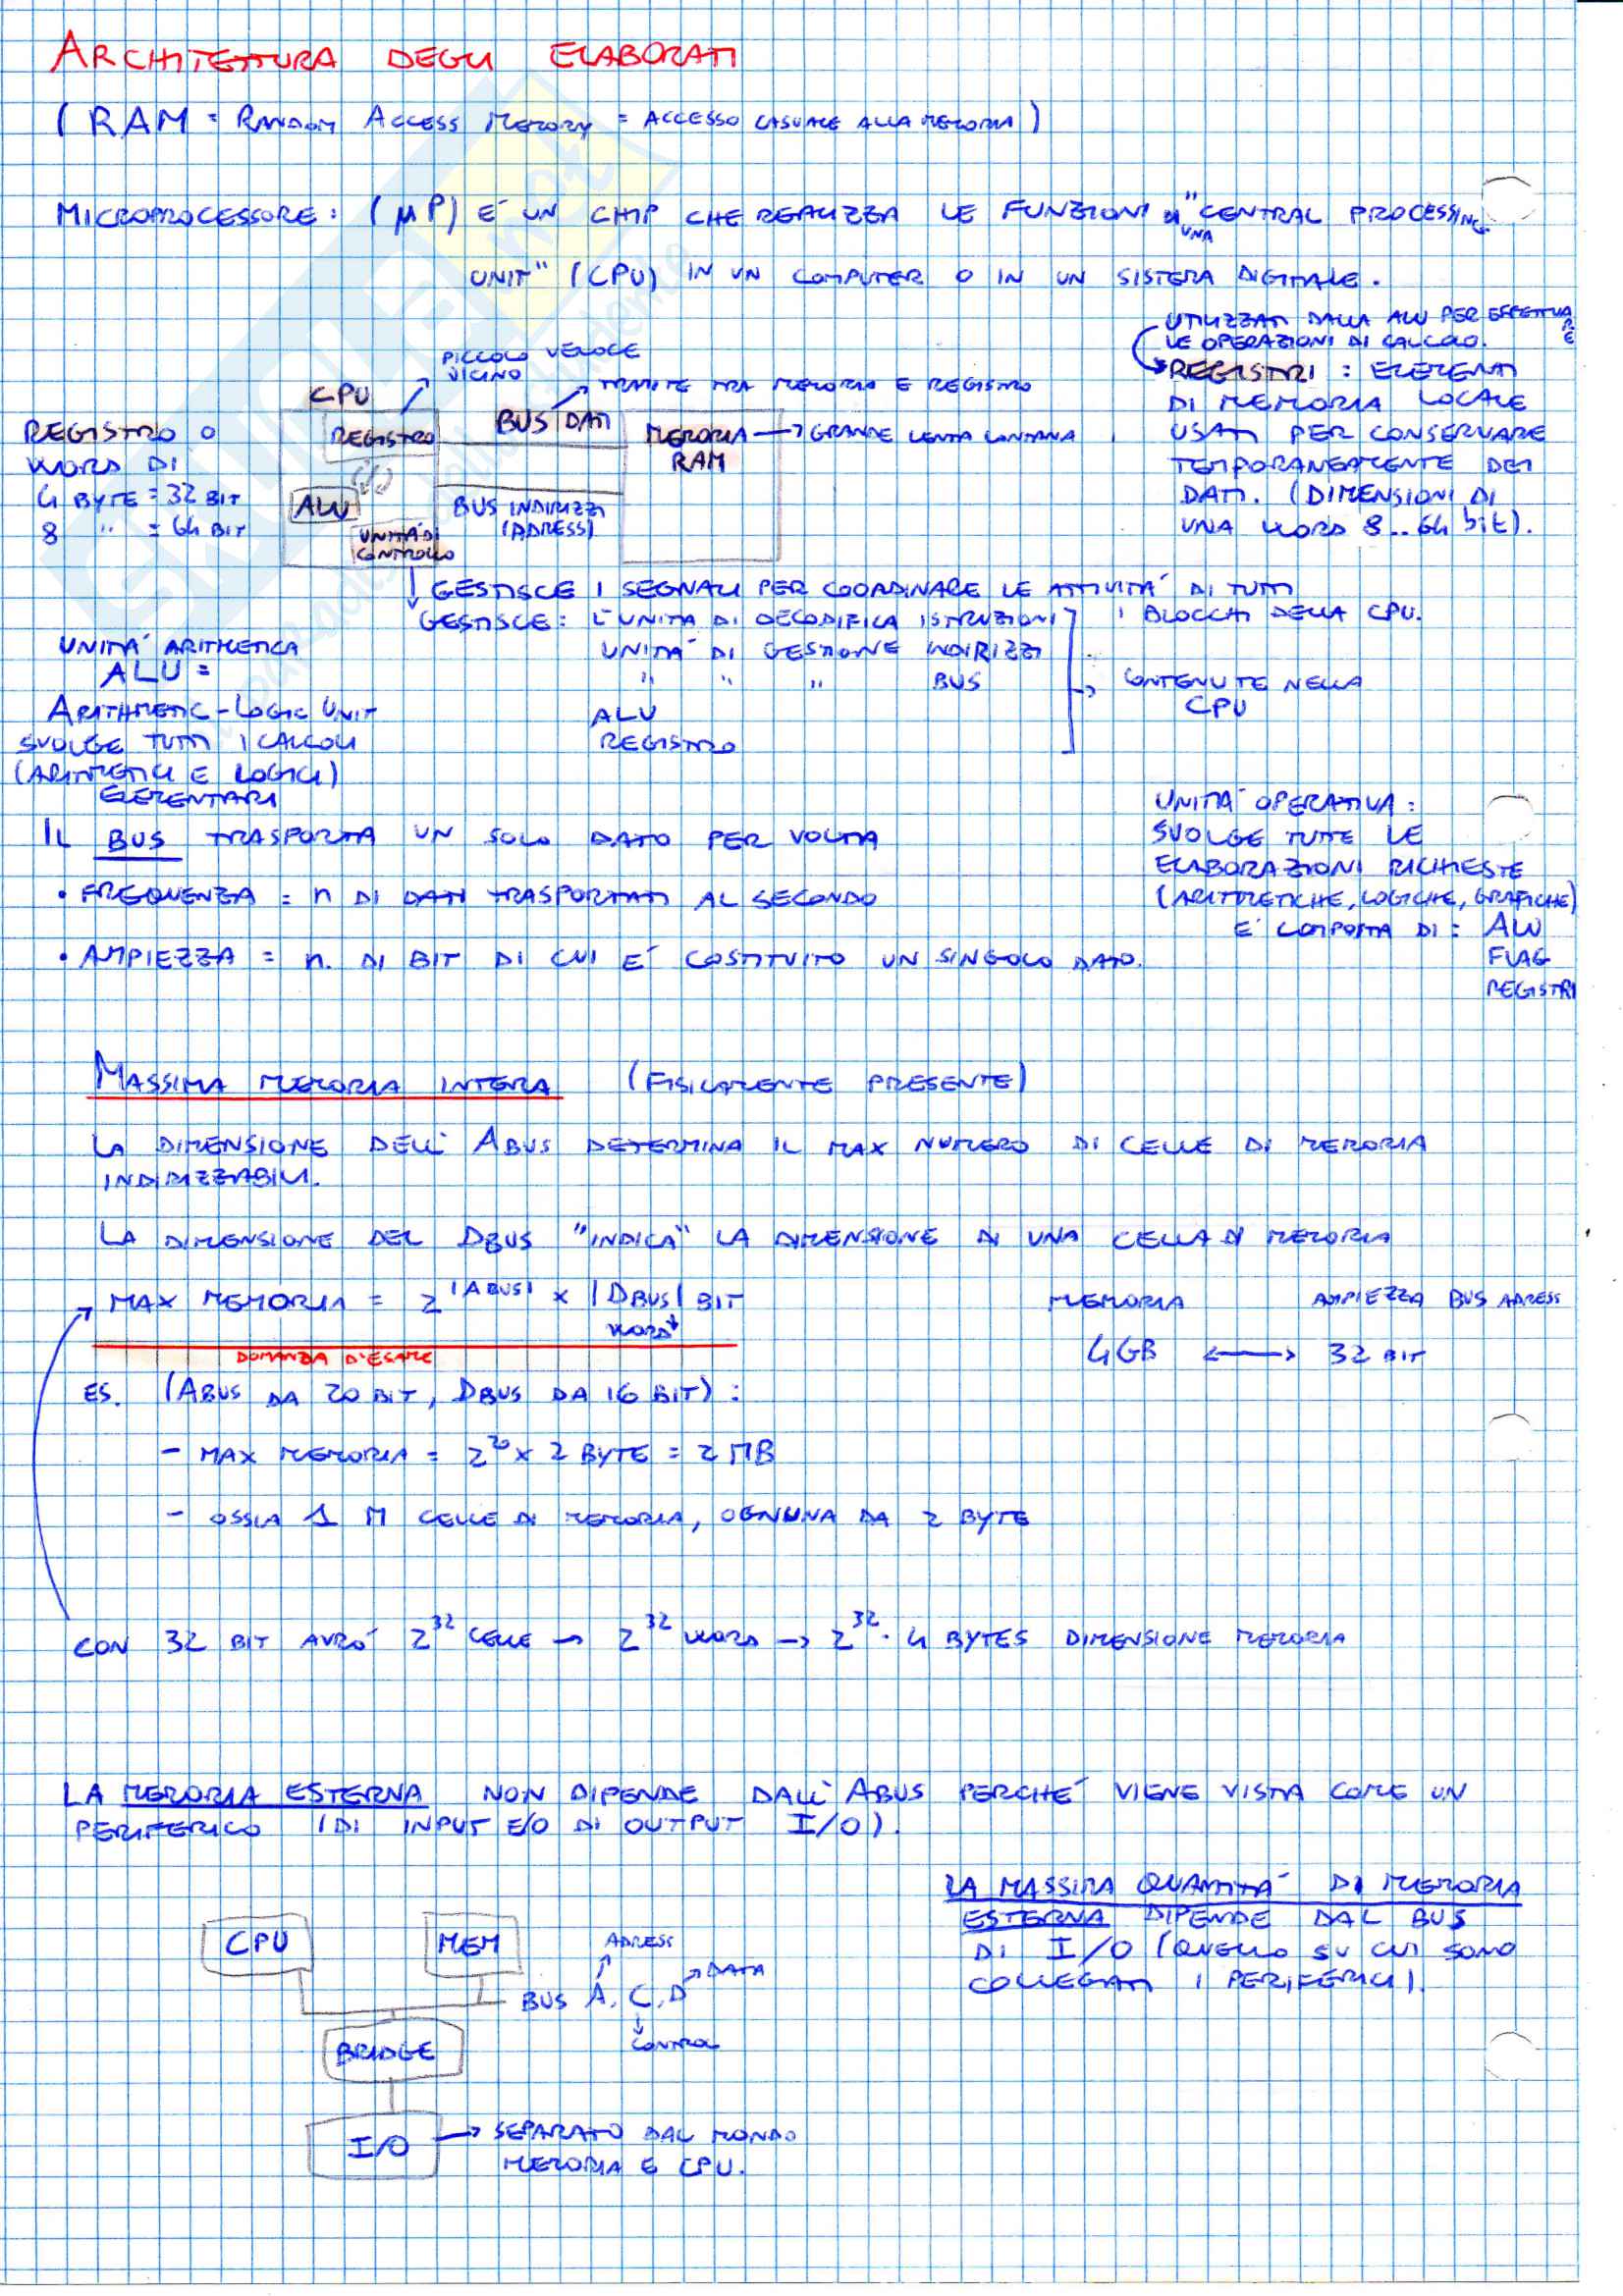 ARCHITETTURA DEGLI ELABORATI
(RAM = RANDOM ACCESS MEMORY = ACCESSO CASUALE ALLA MEMORIA)
MICROPROCESSORE: (μP) E' UN CHIP CHE REALIZZA LE FUNZIONI DI UNA "CENTRAL PROCESSING
UNIT" (CPU) IN UN COMPUTER O IN UN SISTEMA DIGITALE.
UTILIZZATI DALLA ALU PER EFFETTUARE
LE OPERAZIONI DI CALCOLO.
REGISTRI: ELEMENTI
DI MEMORIA LOCALE
USATI PER CONSERVARE
TEMPORANEAMENTE DEI
DATI. (DIMENSIONI DI
UNA WORD 8..64 bit).
PICCOLO VELOCE
VICINO
TRAMITE TRA MEMORIA E REGISTRO
CPU
REGISTRO
BUS DATI
MEMORIA → GRANDE LENTA LONTANA
RAM
ALU
BUS INDIRIZZI
(ADRESS)
UNITÀ DI
CONTROLLO
REGISTRO O
WORD DI
4 BYTE = 32 BIT
8 " = 64 BIT
GESTISCE I SEGNALI PER COORDINARE LE ATTIVITÀ DI TUTTI
I BLOCCHI DELLA CPU.
GESTISCE: L'UNITA DI DECODIFICA ISTRUZIONI
UNITÀ DI GESTIONE INDIRIZZI
" " " BUS
ALU
REGISTRO
→ CONTENUTE NELLA
CPU
UNITÀ ARITMETICA
ALU =
ARITHMETIC-LOGIC UNIT
SVOLGE TUTTI I CALCOLI
(ARITMETICI E LOGICI)
ELEMENTARI
UNITÀ OPERATIVA:
SVOLGE TUTTE LE
ELABORAZIONI RICHIESTE
(ARITMETICHE, LOGICHE, GRAFICHE)
E' COMPOSTA DI: ALU
FLAG
REGISTRI
IL BUS TRASPORTA UN SOLO DATO PER VOLTA
• FREQUENZA = n DI DATI TRASPORTATI AL SECONDO
• AMPIEZZA = n. DI BIT DI CUI E' COSTITUITO UN SINGOLO DATO.
MASSIMA MEMORIA INTERA (FISICAMENTE PRESENTE)
LA DIMENSIONE DELL' ABUS DETERMINA IL MAX NUMERO DI CELLE DI MEMORIA
INDIRIZZABILI.
LA DIMENSIONE DEL DBUS "INDICA" LA DIMENSIONE DI UNA CELLA DI MEMORIA
MAX MEMORIA = 2^|ABUS| × |DBUS| BIT
WORD
MEMORIA AMPIEZZA BUS ADRESS
4GB ↔ 32 BIT
DOMANDA D'ESAME
ES. (ABUS DA 20 BIT, DBUS DA 16 BIT):
- MAX MEMORIA = 2^20 × 2 BYTE = 2 MB
- OSSIA 1 M CELLE DI MEMORIA, OGNUNA DA 2 BYTE
CON 32 BIT AVRÒ 2^32 CELLE → 2^32 WORD → 2^32 · 4 BYTES DIMENSIONE MEMORIA
LA MEMORIA ESTERNA NON DIPENDE DALL' ABUS PERCHÉ VIENE VISTA COME UN
PERIFERICO (DI INPUT E/O DI OUTPUT I/O).
LA MASSIMA QUANTITÀ DI MEMORIA
ESTERNA DIPENDE DAL BUS
DI I/O (QUELLO SU CUI SONO
COLLEGATI I PERIFERICI).
CPU
MEM
ADRESS
DATA
BUS A, C, D
CONTROL
BRIDGE
I/O → SEPARATO DAL MONDO
MEMORIA E CPU.